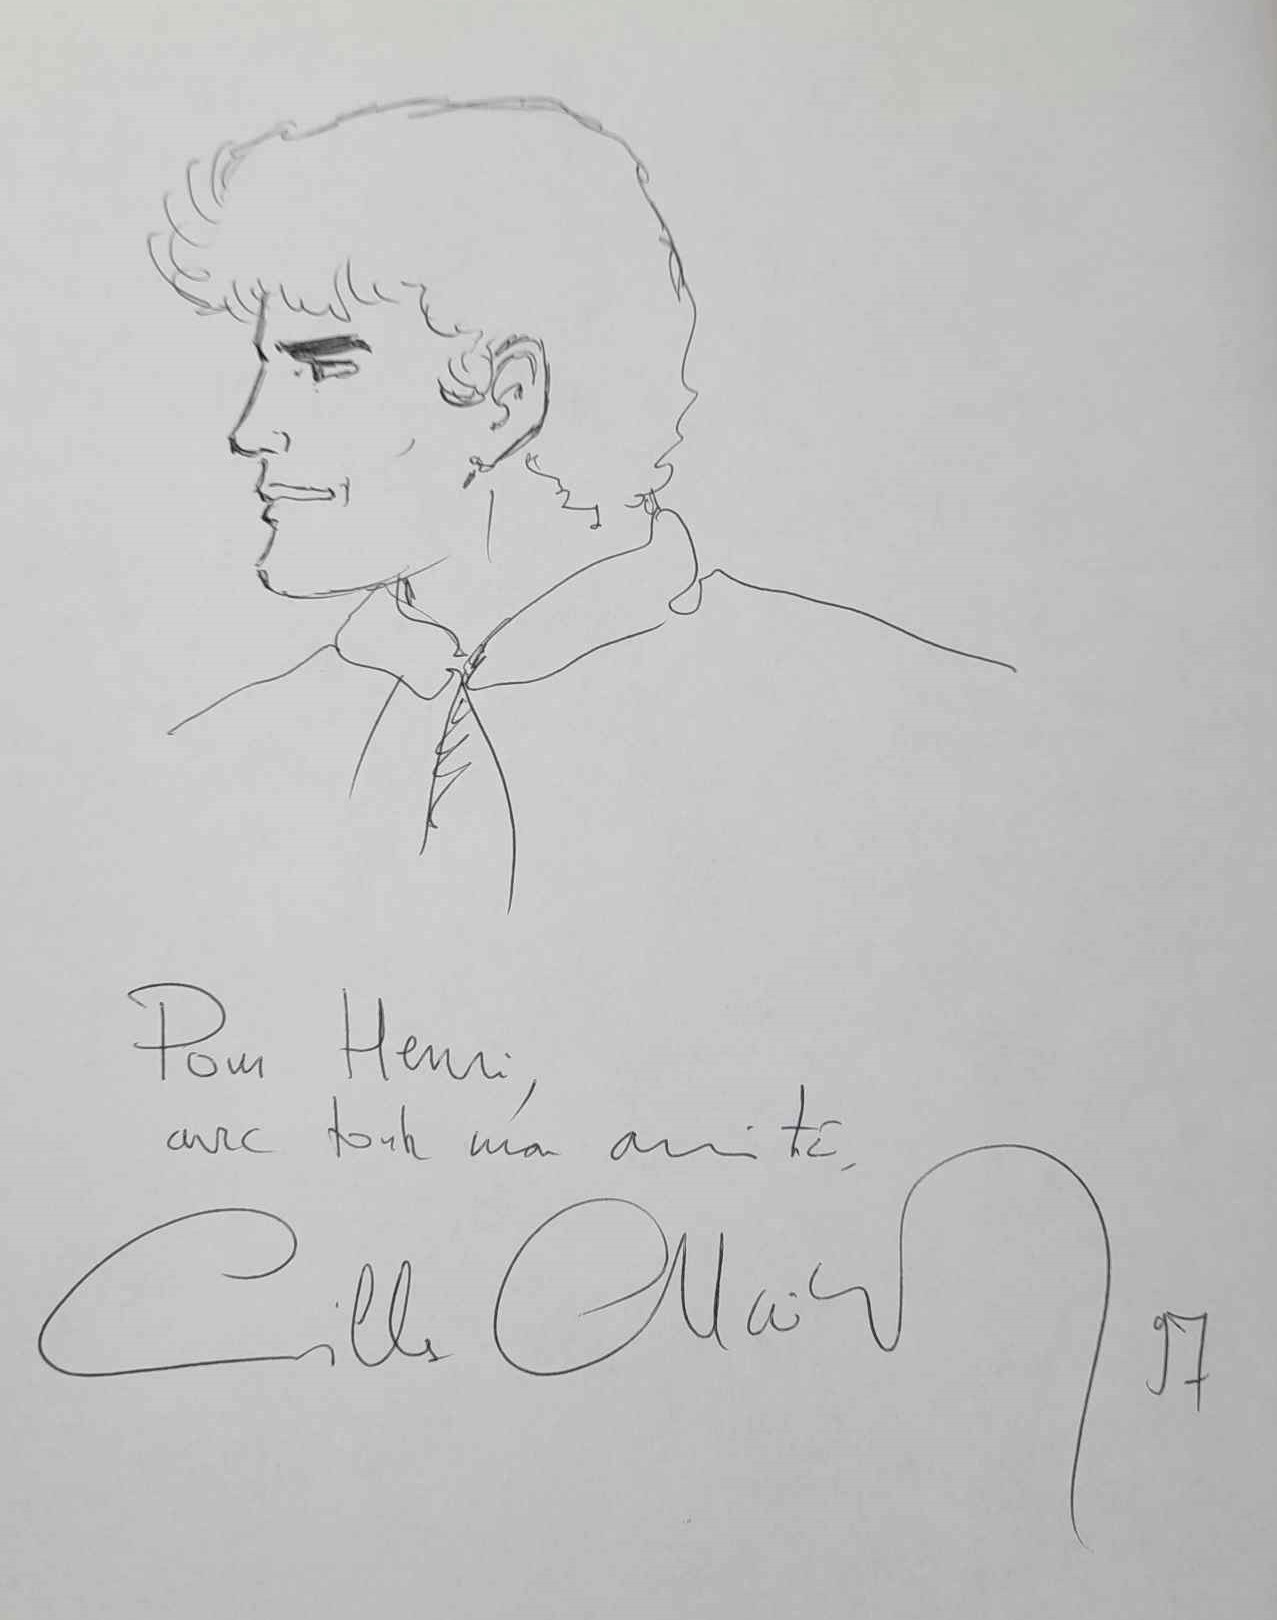 Pour Henri,
avec toute mon amitié,
Gilles
97